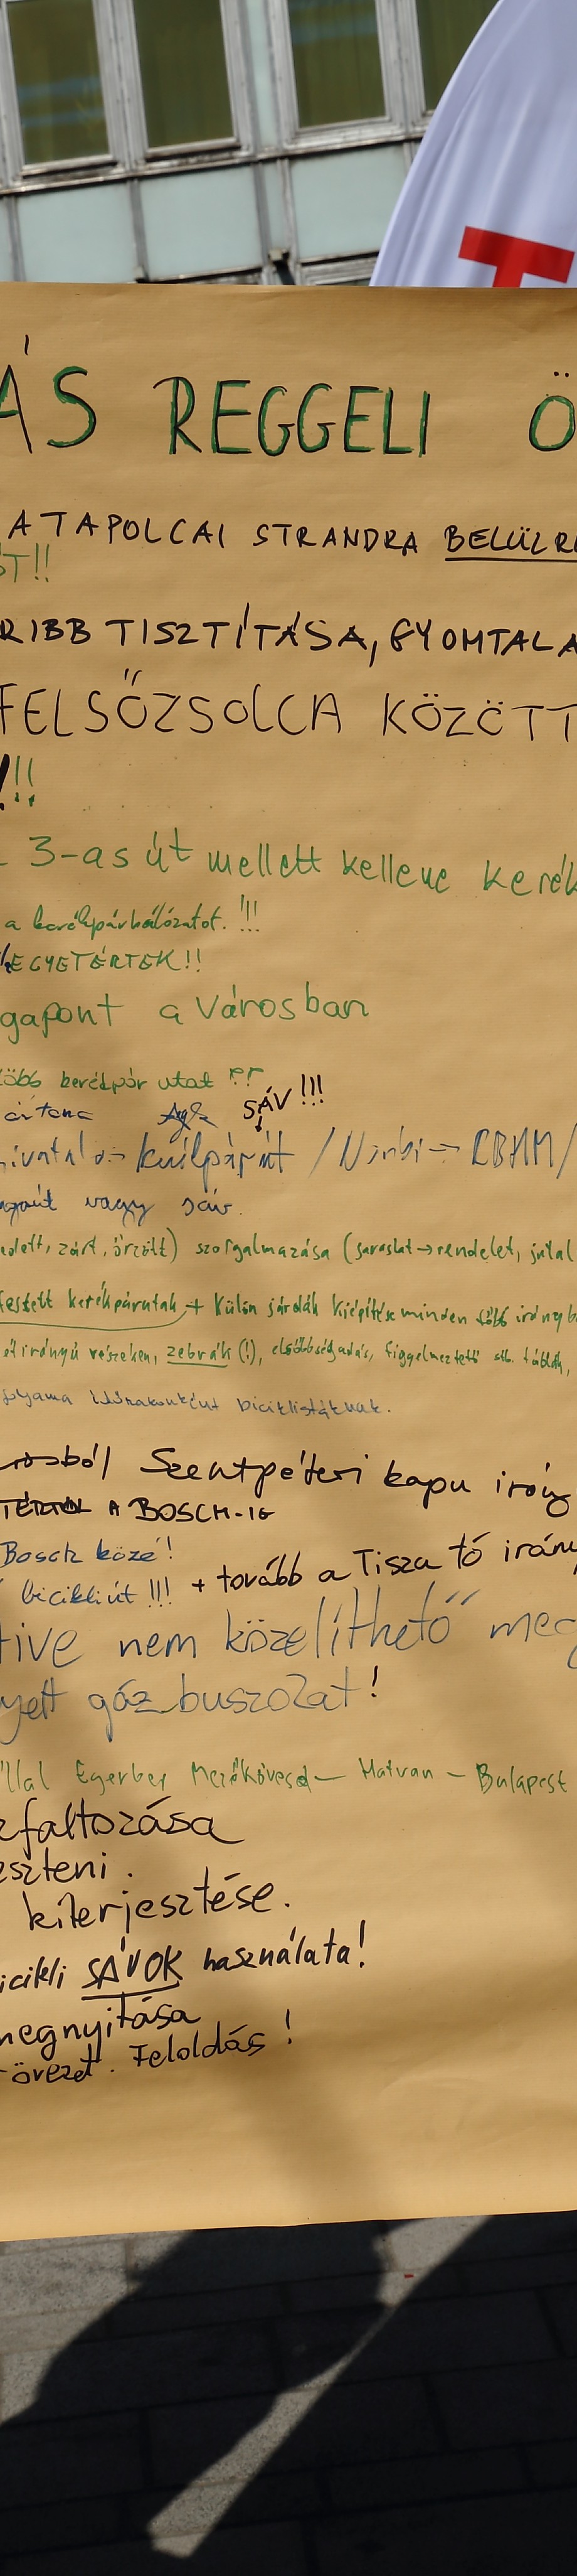 T
ÁS REGGELI Ö
A TAPOLCAI STRANDRA BELÜLR
ST!!
RIBB TISZTÍTÁSA, GYOMTALA
FELSŐZSOLCA KÖZÖTT
!!!
3-as út mellett kellene kerék
a kerékpárhálózatot. !!!
EGYETÉRTEK!!
gapont a Városban
több kerékpár utat !!
SÁV!!!
vagy sáv.
edett, zárt, őrzött) szorgalmazása (javaslat→rendelet, jutal
festett kerékpárutak + külön járdák kiépítése minden több irányb
étirányú részeken, zebrák (!), elsőbbségadás, figyelmeztető stb. táblák,
folyama időszakonként biciklistáknak.
rosból Szentpéteri kapu irány
A BOSCH-IG
Bosch közé!
bicikliút !!! + tovább a Tisza tó irány
tive nem közelíthető meg
yett gáz buszozat!
állal Egerbe, Mezőkövesd — Hatvan — Budapest
zfaltozása
eszteni.
kiterjesztése.
icikli SÁVOK használata!
megnyitása
-övezet. Feloldás!